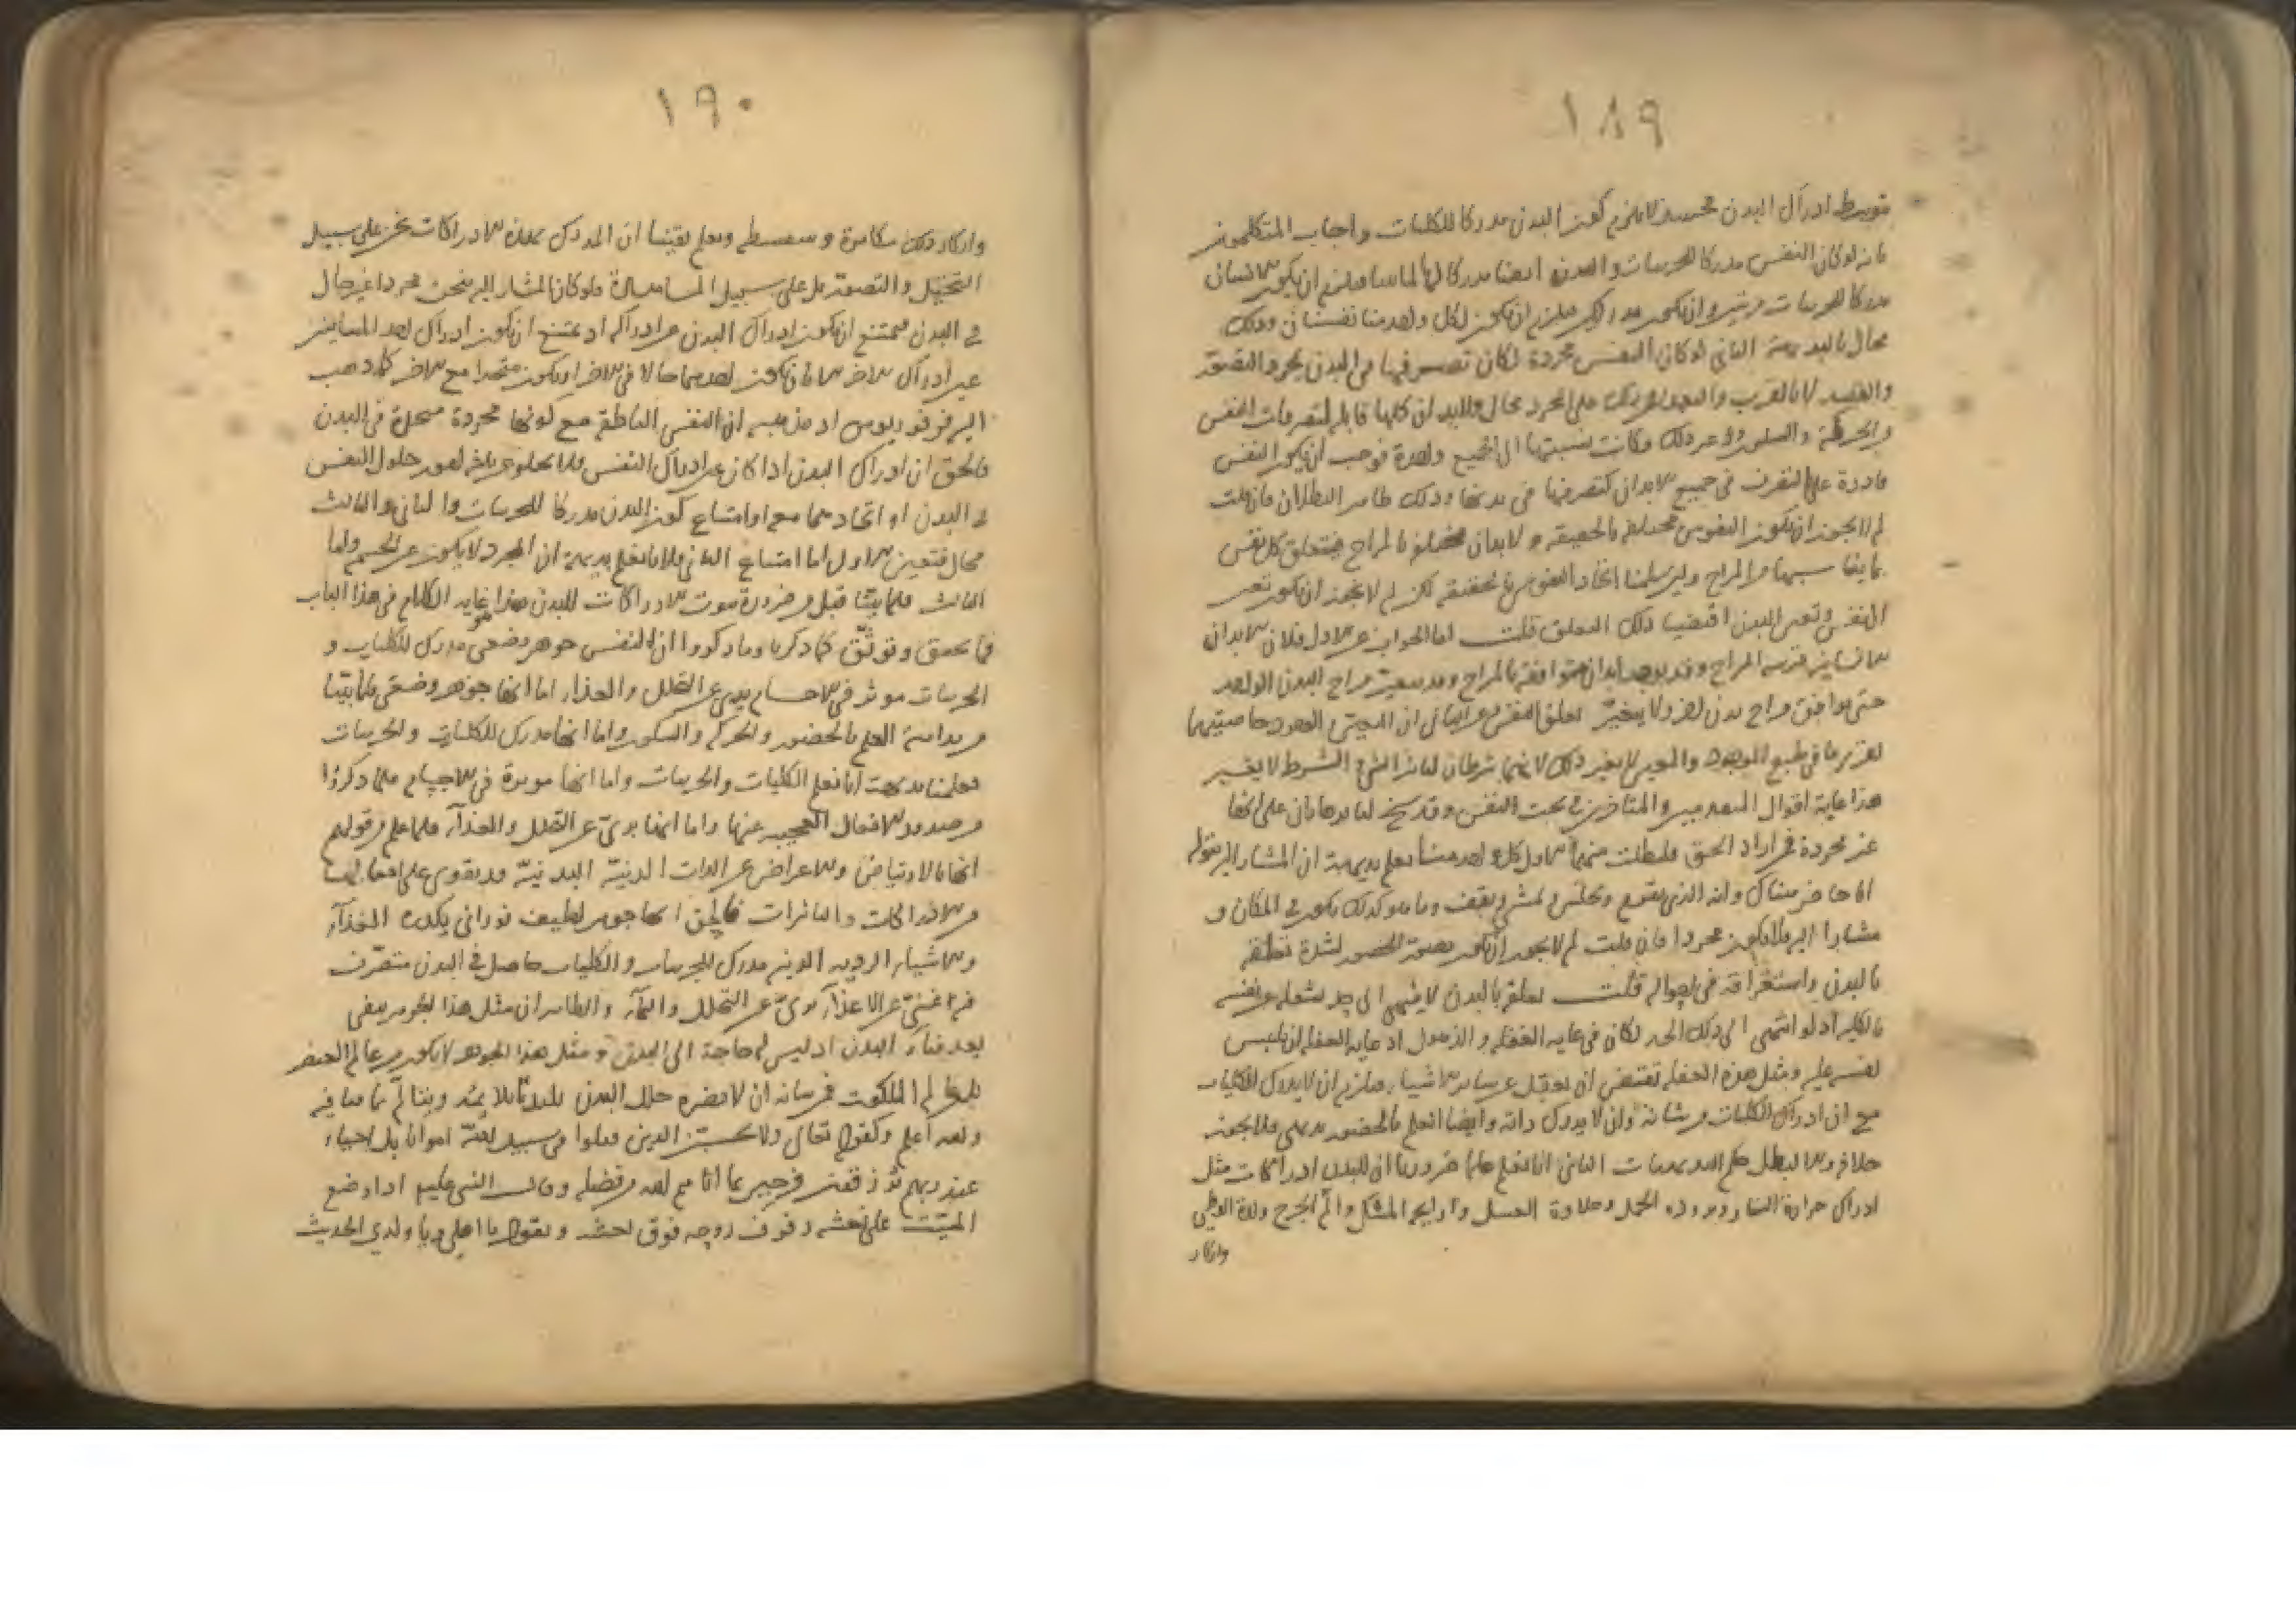 ١٨٩
بتوسط ادراك البدن فحينئذ لا يلزم كون البدن مدركا للكليات واجاب المتكلمون
بانه لو كان النفس مدركا للجزئيات والبدن ايضا مدركا لها فيلزم ان يكون الانسان
مدركا للجزئيات مرتين وان يكون فيلزم ان يكون لكل واحد منا نفسان وذلك
محال بالبديهة الثاني لو كان النفس مجردة لكان تصرفها في البدن بمجرد التصور
والقصد لا بالقرب والبعد لان ذلك على المجرد محال والابدان كلها قابلة لتصرفات النفس
والحركة والسكون وغير ذلك وكانت نسبتها الى الجميع واحدة فوجب ان يكون النفس
قادرة على التصرف في جميع الابدان كتصرفها في بدنها وذلك ظاهر البطلان فان قلت
لم لا يجوز ان يكون النفوس مختلفة بالحقيقة والابدان مختلفة بالمزاج فيتعلق كل نفس
بما يناسبها من المزاج ولئن سلمنا اتحاد النفوس في الحقيقة لكن لم لا يجوز ان يكون تعين
النفس وتعين البدن اقتضيا ذلك التعلق قلت اما الجواب عن الاول فلان الابدان
الانسانية قريبة المزاج وقد يوجد ابدان متوافقة بالمزاج وقد يتغير مزاج البدن الواحد
حتى يوافق مزاج بدن اخر ولا يتغير تعلق النفس وعن الثاني ان التعين
هذا غاية اقوال المتقدمين والمتاخرين في بحث النفس وقد سنح لنا برهانان على انها
غير مجردة فمن اراد الحق فليطلب منهما الاول كل واحد منا يعلم بديهة ان المشار اليه بقوله
انا حاضر هناك وانه الذي يقوم ويجلس ويمشي ويقف وما هو كذلك يكون في المكان و
مشارا اليه فلا يكون مجردا فان قلت لم لا يجوز ان يكون لشدة تعلقه
بالبدن واستغراقه في احواله قلت تعلقه بالبدن لا ينتهي الى حد يشغله عن نفسه
بالكلية اذ لو انتهى الى ذلك الحد لكان في غاية الغفلة والذهول اذ غاية الغفلة ان يلتبس
نفسه عليه ومثل هذه الغفلة تقتضي ان يغفل عن سائر الاشياء فيلزم ان لا يدرك الكليات
مع ان ادراك الكليات من شانه وان لا يدرك ذاته وايضا العلم بالحضور بديهي فلا يجوز
خلافه والا لبطل حكم البديهيات الثاني انا نعلم علما ضروريا ان للبدن ادراكات مثل
ادراك حرارة النار وبرودة الجمد وحلاوة العسل ورايحة المشك والم الجرح ولذة الوطي
وانكار
١٩٠
وانكار ذلك مكابرة وسفسطة ونعلم يقينا ان المدرك بهذه الادراكات نحن على سبيل
التخيل والتصور بل على سبيل المشاهدة فلو كان المشار اليه بنحن مجردا غير حال
في البدن فيمتنع ان يكون ادراك البدن عين ادراكه اذ يمتنع ان يكون ادراك احد المتباينين
عين ادراك الاخر الا بان يكون احدهما حالا في الاخر او يكون متحدا مع الاخر كما ذهب
اليه فرفوريوس اذ مذهبه ان النفس الناطقة مع كونها مجردة متحدة في البدن
فالحق ان ادراك البدن اذا كان عين ادراك النفس فلا يخلو عن احد امور حلول النفس
في البدن او اتحادهما معا او امتناع كون البدن مدركا للجزئيات والثاني والثالث
محال فتعين الاول اما امتناع الثاني فلانا نعلم بديهة ان المجرد لا يكون عين الجسم واما
الثالث فلما بينا قبل من ضرورة ثبوت الادراكات للبدن هذا غاية الكلام في هذا الباب
فما تحقق وتوثق مما ذكرنا وما ذكروا ان النفس هو جوهر وضعي مدرك للكليات و
الجزئيات موثر في الاجسام بري عن التحلل والغذاء اما انها جوهر وضعي فلما بينا
من بداهة العلم بالحضور والحركة والسكون واما انها مدرك للكليات والجزئيات
فعلمنا بديهة انا نعلم الكليات والجزئيات واما انها موثرة في الاجسام فلما ذكروا
من صدور الافعال العجيبة عنها واما انها بري عن التحلل والغذاء فلما علم من قولهم
انها بالارتياض والاعراض عن اللذات الدنية البدنية قد يقوى على افعالها
من الادراكات والتاثيرات فالحق انها جوهر لطيف نوراني يكدره الغذاء
والاشياء الردية الدنية مدرك للجزئيات والكليات حاصل في البدن متصرف
فيه غني عن الاغتذاء بري عن التحلل والنماء والظاهر ان مثل هذا الجوهر يبقى
بعد فناء البدن اذ ليس له حاجة الى البدن ومثل هذا الجوهر لا يكون من عالم العنصر
بل من عالم الملكوت فمن شانه ان لا يضره خلل البدن ويتالم بما ينافيه
والله اعلم وكقوله تعالى ولا تحسبن الذين قتلوا في سبيل الله امواتا بل احياء
عند ربهم يرزقون فرحين بما اتاهم الله من فضله وقال النبي عليه اذا وضع
الميت على نعشه رفرف روحه فوق نعشه ويقول يا اهلي ويا ولدي الحديث